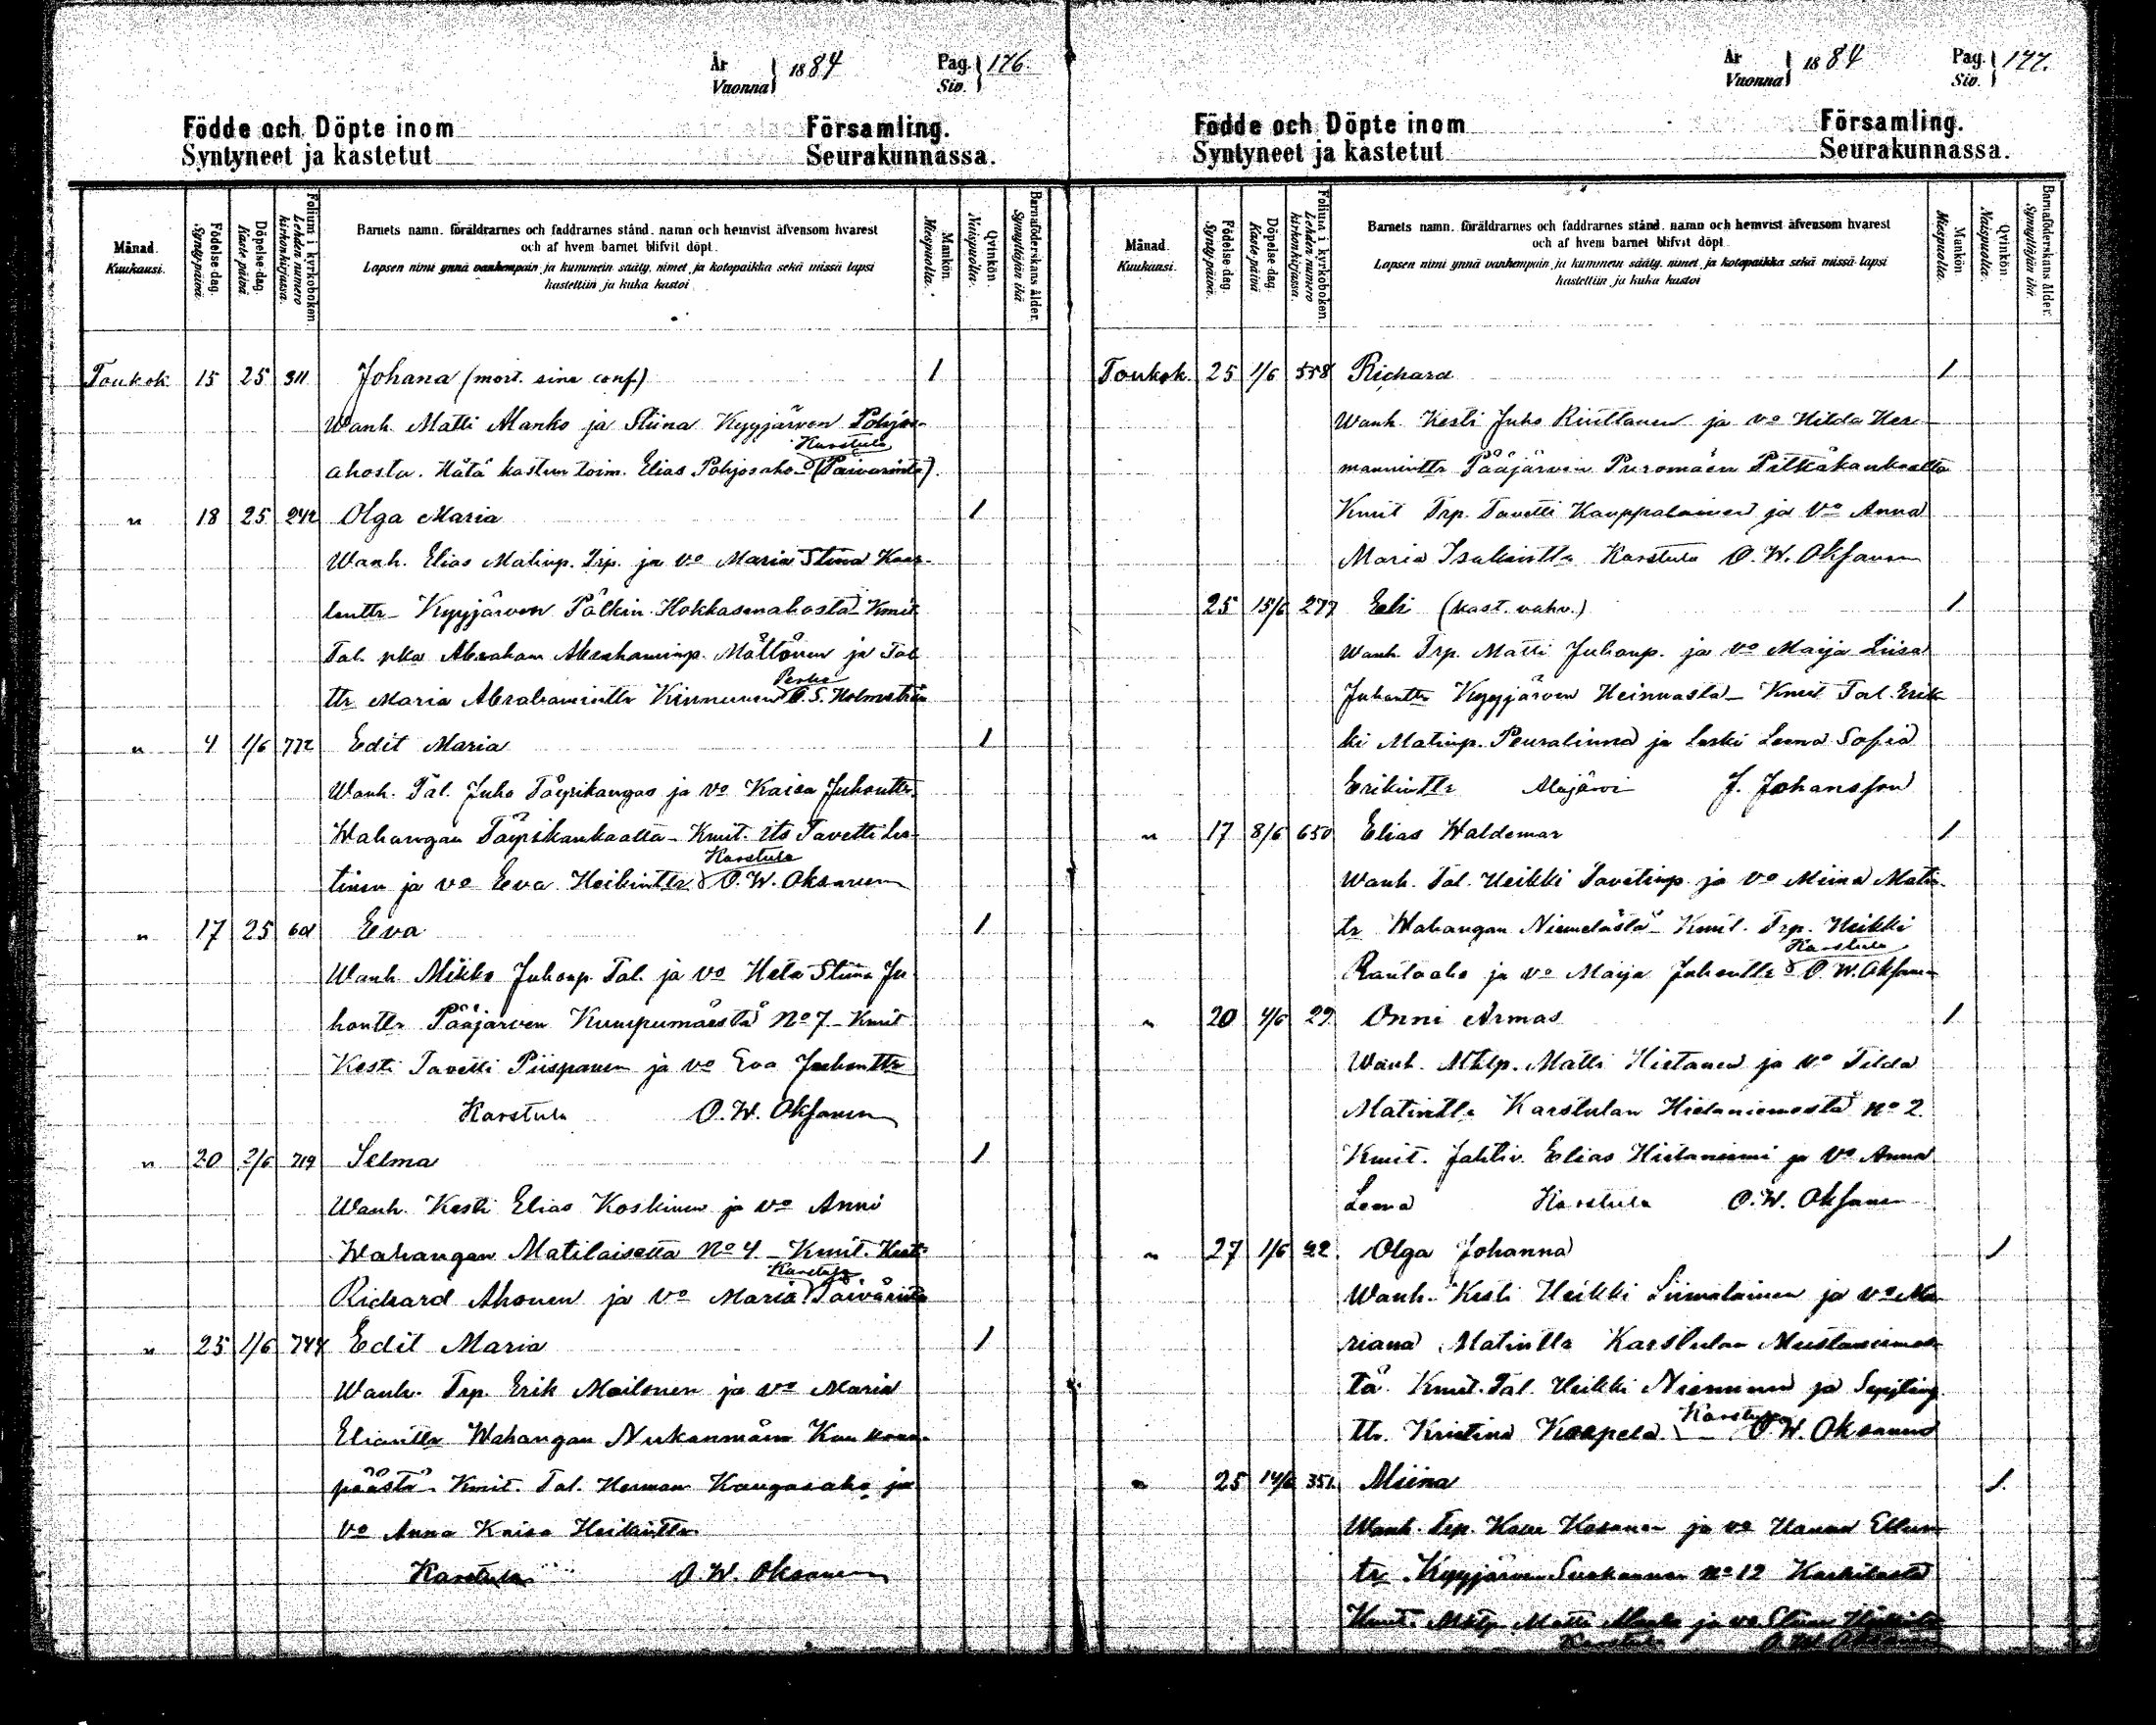 År
Vuonna 1884 Pag. Siv. 176.
Födde och Döpte inom Församling.
Syntyneet ja kastetut Seurakunnassa.
Månad. Kuukausi.
Födelse-dag. Synty-päivä.
Döpelse-dag. Kaste-päivä
Folium i kyrkoboken. Lehden numero kirkonkirjassa.
Barnets namn. föräldrarnes och faddrarnes stånd. namn och hemvist äfvensom hvarest
och af hvem barnet blifvit döpt.
Lapsen nimi ynnä vanhempain ja kummein sääty. nimet ja kotopaikka sekä missä lapsi
kastettiin ja kuka kastoi
Mankön. Miespuolta.
Qvinkön. Naispuolta.
Barnaföderskans ålder. Synnyttäjän ikä.
Toukok 15 25 311 Johana (mort. sine conf) 1
Wanh. Matti Manko ja Stiina Kyyjärven Pohjos-
Karstula
ahosta. Hätä kastun toim. Elias Pohjosaho (Päivärinta).
" 18 25 242 Olga Maria 1
Wanh. Elias Matinp. Trp. ja vo Maria Stina Kaar-
lentr Kyyjärven Pölkin Hokkasenahosta - Kmit
Tal. pka Abraham Abrahaminp. Möttönen ja Tal
Perho
ttr Maria Abrahamintr Kinnunen O. S. Holmström
" 4 1/6 772 Edit Maria 1
Wanh. Tal. Juho Täyrikangas ja vo Kaisa Juhontr.
Wahangan Täyrikankaalta - Kmit. its Tavetti Les-
Karstula
tinen ja vo Eeva Heikintr O. W. Oksanen
" 17 25 601 Eva 1
Wanh. Mikko Juhonp. Tal. ja vo Heta Stiina Ju-
hontr Pääjärven Kumpumäestä No 7 - Kmit
Kesti Tavetti Piispanen ja vo Eva Juhontr
Karstula O. W. Oksanen
" 20 2/6 719 Selma 1
Wanh. Kesti Elias Koskinen ja vo Anni
Wahangan Matilaisetta No 4 - Kmit. Kesti
Karstula
Richard Ahonen ja vo Maria Päivärinta
" 25 1/6 744 Edit Maria 1
Wanh. Trp. Erik Moilonen ja vo Maria
Eliantr Wahangan
päästä - Kmit. Tal. Herman Kangasaho ja
vo Anna Kaisa Heikintr
Karstula O. W. Oksanen
År
Vuonna 1884 Pag. Siv. 177.
Födde och Döpte inom Församling.
Syntyneet ja kastetut Seurakunnassa.
Månad. Kuukausi.
Födelse-dag. Synty-päivä.
Döpelse-dag. Kaste-päivä
Folium i kyrkoboken. Lehden numero kirkonkirjassa.
Barnets namn. föräldrarnes och faddrarnes stånd. namn och hemvist äfvensom hvarest
och af hvem barnet blifvit döpt.
Lapsen nimi ynnä vanhempain ja kummein sääty. nimet ja kotopaikka sekä missä lapsi
kastettiin ja kuka kastoi
Mankön. Miespuolta.
Qvinkön. Naispuolta.
Barnaföderskans ålder. Synnyttäjän ikä.
Toukok. 25 1/6 558 Richard 1
Wanh. Kesti Juho Rinttanen ja vo Hilda Her-
mannintr Pääjärven Puromäen Pitkäkankaalta
Kmit Trp. Tavetti Kauppalainen ja vo Anna
Maria Isakintr Karstula O. W. Oksanen
25 15/6 277 Eeli (kast. vahv.) 1
Wanh. Trp. Matti Juhonp. ja vo Maija Liisa
Juhontr Kyyjärven Heinuasta - Kmit Tal. Erik
ki Matinp. Peuralinna ja leski Leena Sofia
Erikintr Alajärvi J. Johansson
" 17 8/6 650 Elias Waldemar 1
Wanh. Tal. Heikki Tavetinp. ja vo Miina Matin-
tr Wahangan Niemelästä - Kmit. Trp. Heikki
Karstula
Rautaaho ja vo Maija Juhontr O. W. Oksanen
" 20 4/6 29 Onni Armas 1
Wanh. Mklp. Matti Hietanen ja vo Tilda
Matintr Karstulan Hietaniemestä No 2.
Kmit. Jahtiv. Elias Hietaniemi ja vo Anna
Leena Karstula O. W. Oksanen
" 27 1/6 42. Olga Johanna 1
Wanh. Kesti Heikki Liimatainen ja vo Ma-
riana Matintr Karstulan Mustaniemes-
tä. Kmit. Tal. Heikki Nieminen ja
Karstula
ttr. Kristina Koapela O. W. Oksanen
" 25 14/6 351. Miina 1.
Wanh. Trp. Kalle Kesanen ja vo Hanna
tr Kyyjärven No 12
Kmit. Matti Manko ja vo Stiina
Karstula O. W. Oksanen